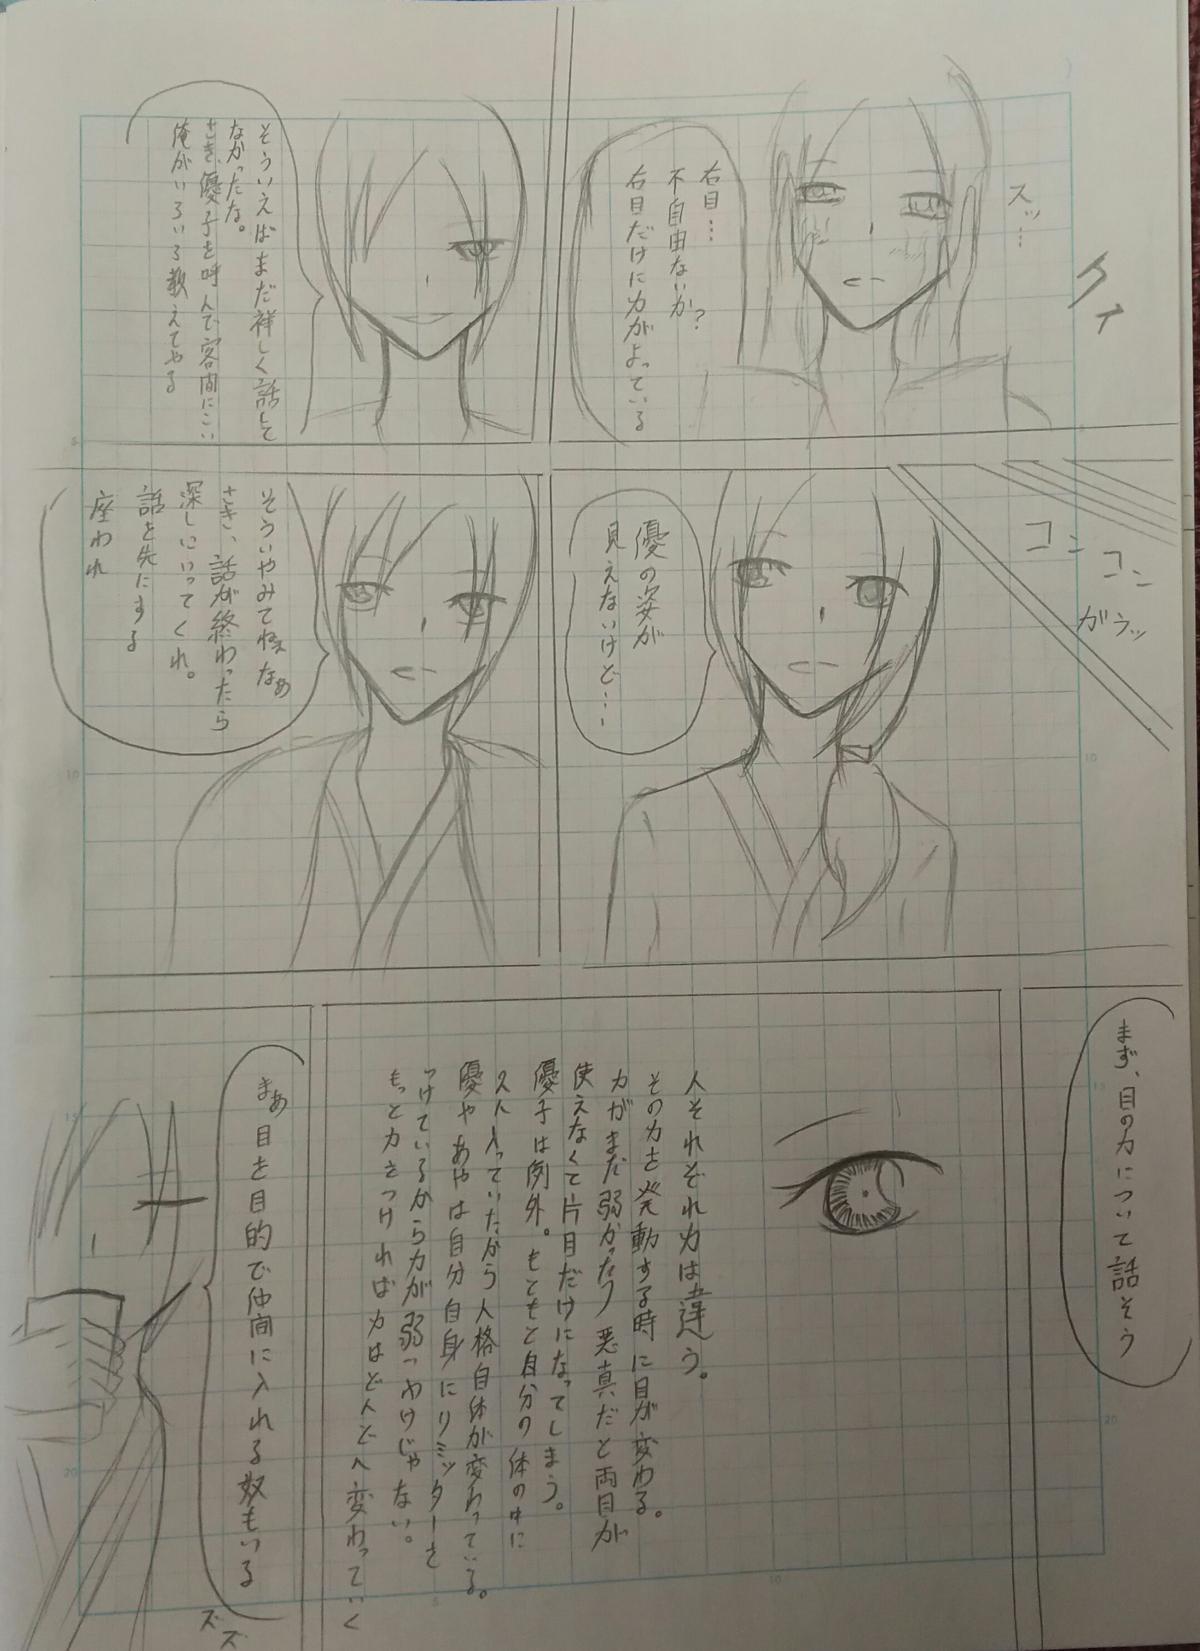 スッ…
クイ
右目…
不自由ないか?
右目だけに力がよっている
そういえばまだ祥しく話して
なかったな。
さき、優子を呼んで客間にこい
俺がいろいろ教えてやる
コンコン
ガラッ
優の姿が
見えないけど…
そういやみてねぇなぁ
さき、話が終わったら
深しにいってくれ。
話を先にする
座われ
まず、目の力について話そう
人それぞれ力は違う。
その力を発動する時に目が変わる。
力がまだ弱かったり
悪真だと両目が
使えなくて片目だけになってしまう。
優子は例外。もともと自分の体の中に
入っていたから人格自体が変わっている。
優やあやは自分自身にリミッターを
つけているから力が弱いわけじゃない。
もっと力をつければ力はどんどん変わっていく
まぁ目を目的で仲間に入れる奴もいる
ズズ